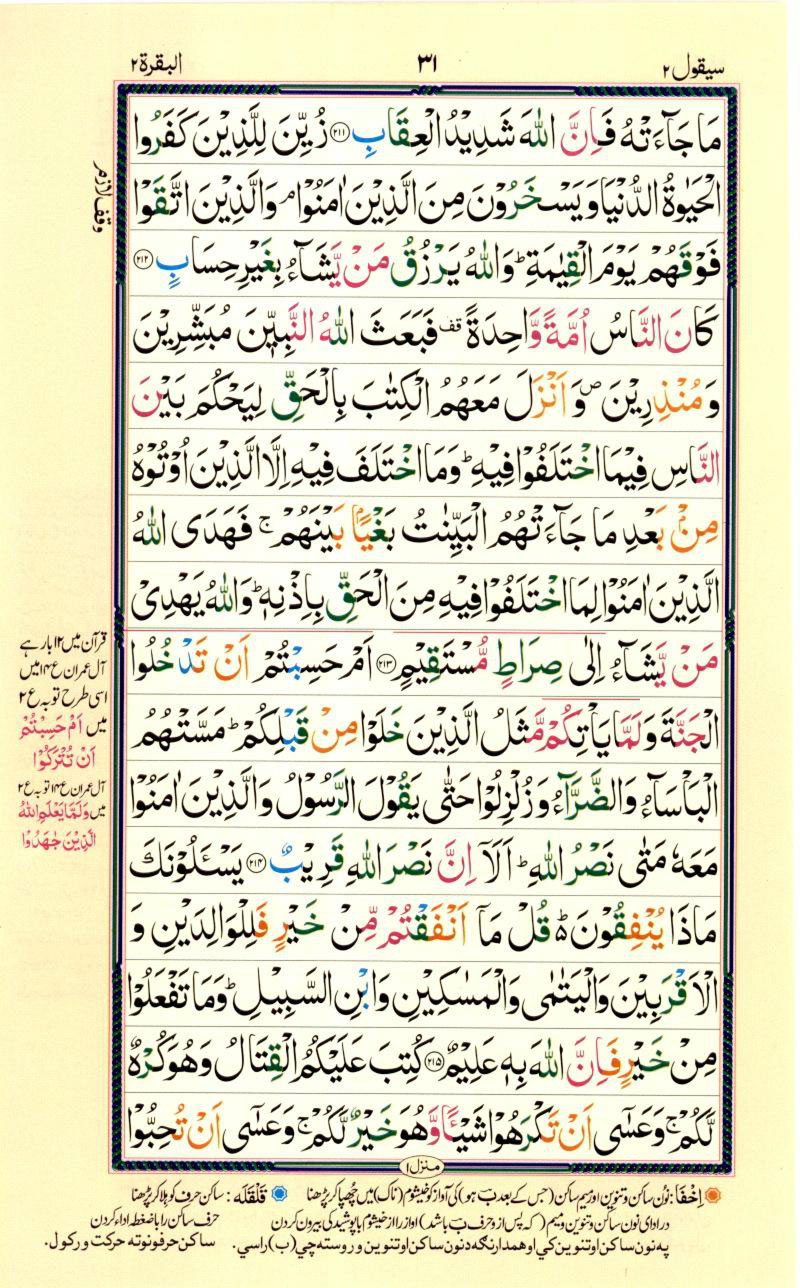 سیقول ۲
۳۱
البقرة ۲
مَا جَآءَتْهُ فَاِنَّ اللّٰهَ شَدِیْدُ الْعِقَابِ ۝۲۱۱ زُیِّنَ لِلَّذِیْنَ كَفَرُوا
الْحَیٰوةُ الدُّنْیَا وَیَسْخَرُوْنَ مِنَ الَّذِیْنَ اٰمَنُوْا ۘ وَالَّذِیْنَ اتَّقَوْا
وقف لازم
فَوْقَهُمْ یَوْمَ الْقِیٰمَةِ ؕ وَاللّٰهُ یَرْزُقُ مَنْ یَّشَآءُ بِغَیْرِ حِسَابٍ ۝۲۱۲
كَانَ النَّاسُ اُمَّةً وَّاحِدَةً قف فَبَعَثَ اللّٰهُ النَّبِیّٖنَ مُبَشِّرِیْنَ
وَمُنْذِرِیْنَ ۪ وَاَنْزَلَ مَعَهُمُ الْكِتٰبَ بِالْحَقِّ لِیَحْكُمَ بَیْنَ
النَّاسِ فِیْمَا اخْتَلَفُوْا فِیْهِ ؕ وَمَا اخْتَلَفَ فِیْهِ اِلَّا الَّذِیْنَ اُوْتُوْهُ
مِنْۢ بَعْدِ مَا جَآءَتْهُمُ الْبَیِّنٰتُ بَغْیًۢا بَیْنَهُمْ ۚ فَهَدَی اللّٰهُ
الَّذِیْنَ اٰمَنُوْا لِمَا اخْتَلَفُوْا فِیْهِ مِنَ الْحَقِّ بِاِذْنِهٖ ؕ وَاللّٰهُ یَهْدِیْ
مَنْ یَّشَآءُ اِلٰی صِرَاطٍ مُّسْتَقِیْمٍ ۝۲۱۳ اَمْ حَسِبْتُمْ اَنْ تَدْخُلُوا
الْجَنَّةَ وَلَمَّا یَاْتِكُمْ مَّثَلُ الَّذِیْنَ خَلَوْا مِنْ قَبْلِكُمْ ؕ مَسَّتْهُمُ
الْبَاْسَآءُ وَالضَّرَّآءُ وَزُلْزِلُوْا حَتّٰی یَقُوْلَ الرَّسُوْلُ وَالَّذِیْنَ اٰمَنُوْا
مَعَهٗ مَتٰی نَصْرُ اللّٰهِ ؕ اَلَاۤ اِنَّ نَصْرَ اللّٰهِ قَرِیْبٌ ۝۲۱۴ یَسْـَٔلُوْنَكَ
مَاذَا یُنْفِقُوْنَ ؕ۬ قُلْ مَاۤ اَنْفَقْتُمْ مِّنْ خَیْرٍ فَلِلْوَالِدَیْنِ وَ
الْاَقْرَبِیْنَ وَالْیَتٰمٰی وَالْمَسٰكِیْنِ وَابْنِ السَّبِیْلِ ؕ وَمَا تَفْعَلُوْا
مِنْ خَیْرٍ فَاِنَّ اللّٰهَ بِهٖ عَلِیْمٌ ۝۲۱۵ كُتِبَ عَلَیْكُمُ الْقِتَالُ وَهُوَ كُرْهٌ
لَّكُمْ ۚ وَعَسٰۤی اَنْ تَكْرَهُوْا شَیْـًٔا وَّهُوَ خَیْرٌ لَّكُمْ ۚ وَعَسٰۤی اَنْ تُحِبُّوْا
قرآن میں ۱۲ بار ہے
آل عمران ع ۱۴ میں
اسی طرح توبہ ع ۲
میں اَمْ حَسِبْتُمْ
اَنْ تُتْرَكُوْا
آل عمران ع ۱۴ توبہ ع ۲
میں وَلَمَّا یَعْلَمِ اللّٰهُ
الَّذِیْنَ جٰهَدُوْا
منزل ۱
اِخْفَا: نون ساکن و تنوین اور میم ساکن (جس کے بعد ب ہو) کی آواز کو خیشوم (ناک) میں چھپا کر پڑھنا قَلْقَلَه: ساکن حرف کو ہلا کر پڑھنا
در ادای نون ساکن و تنوین و میم (که پس از و حرف ب باشد) آواز را از خیشوم با پوشیدگی بیرون کردن حرف ساکن را با ضغطه اداء کردن
په نون ساکن او تنوین کي او همدارنګه د نون ساکن او تنوین و روسته چي (ب) راسي. ساکن حرفونو ته حرکت ورکول.